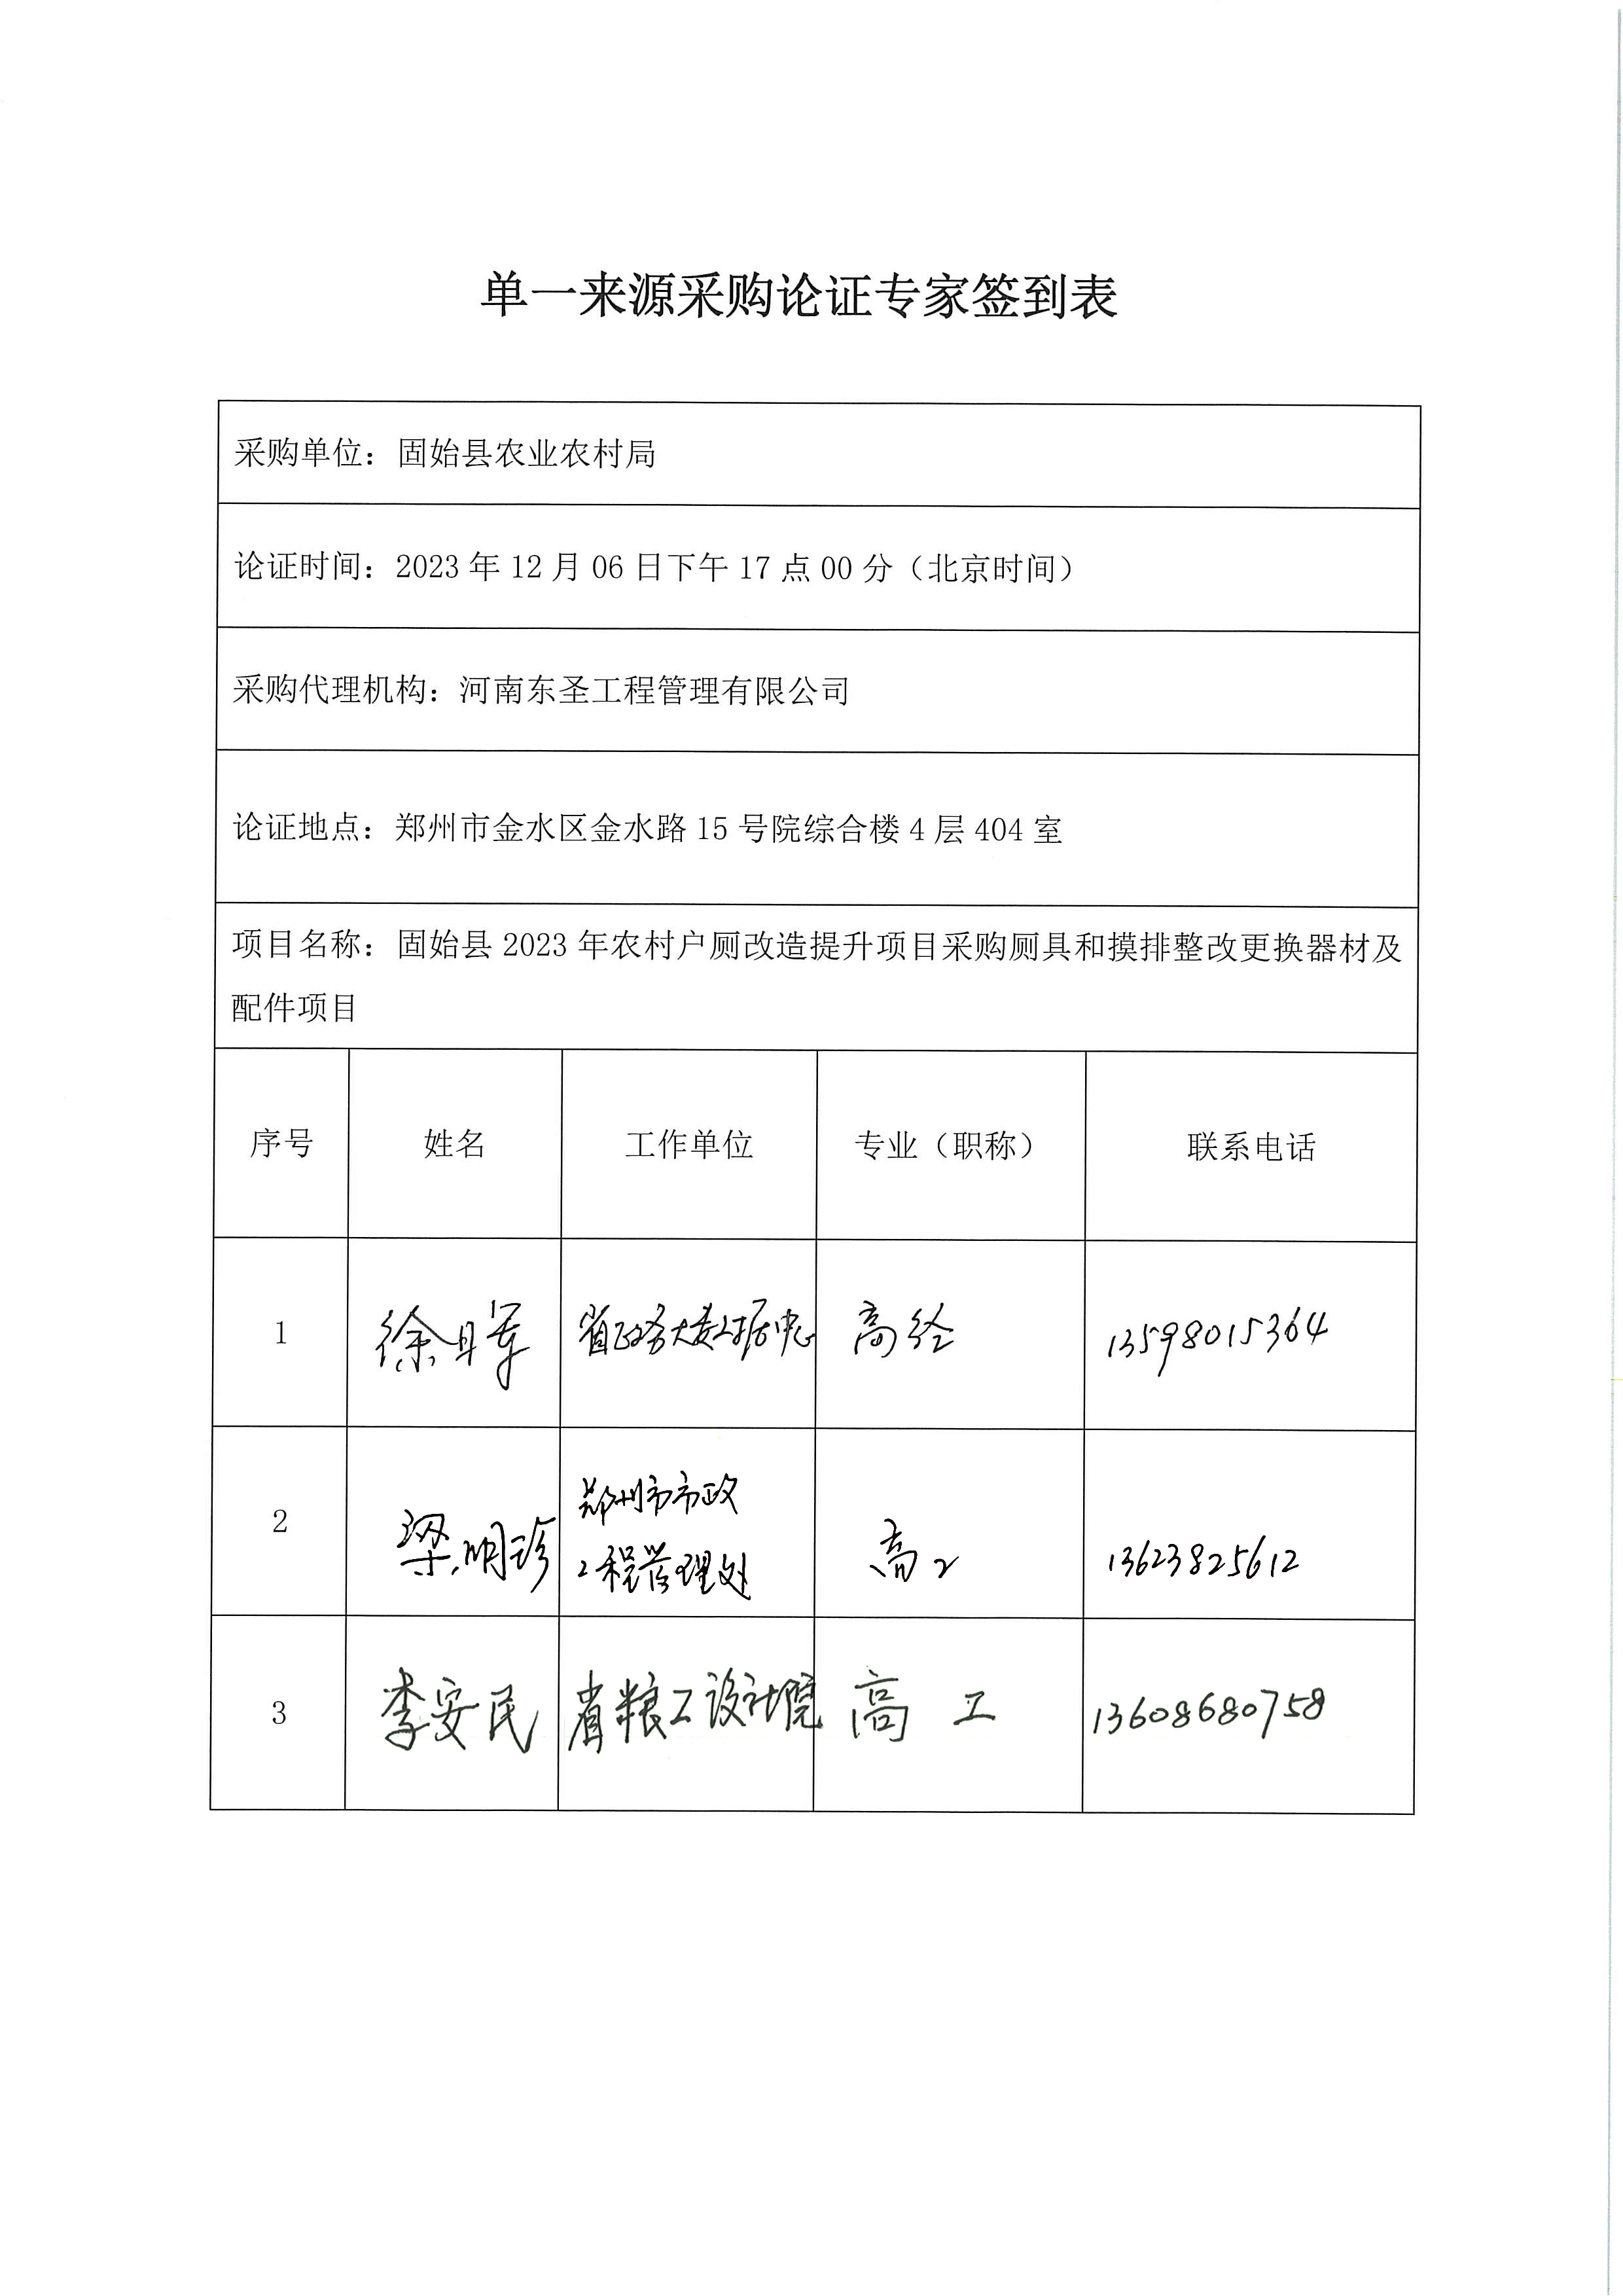 单一来源采购论证专家签到表
采购单位：固始县农业农村局
论证时间：2023年12月06日下午17点00分（北京时间）
采购代理机构：河南东圣工程管理有限公司
论证地点：郑州市金水区金水路15号院综合楼4层404室
项目名称：固始县2023年农村户厕改造提升项目采购厕具和摸排整改更换器材及
配件项目
序号 姓名 工作单位 专业（职称） 联系电话
1 徐 军 省政务大数据中心 高经 13598015364
2 梁明珍 郑州市市政
工程管理处 高工 13623825612
3 李安民 省粮工设计院 高工 13608680758